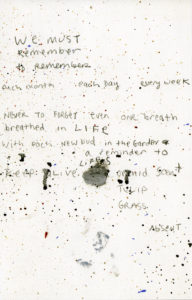 WE MUST
Remember
to Remember
each month each Day every week
NEVER TO FORGET even one breath
breathed in LIFE
with each New bud in the Garden
a reminder to
Live
GRASS
ABSENT